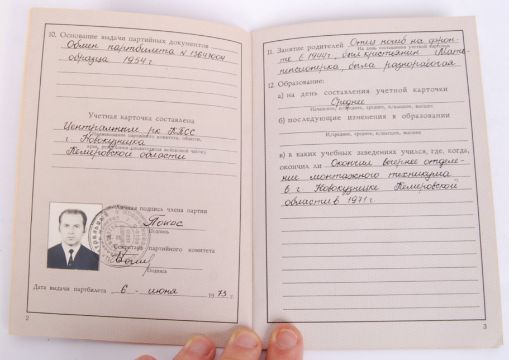 10. Основание выдачи партийных документов
Обмен партбилета N 13643004
образца 1954 г.
Учетная карточка составлена
Центральным рк КПСС
(наименование партийного комитета, области,
г. Новокузнецка
края, республики)
Кемеровской области
Личная подпись члена партии
Подпись
Секретарь партийного комитета
Подпись
Дата выдачи партбилета 6 - июня 1973 г.
2
11. Занятие родителей Отец погиб на фрон-
На день составления учетной карточки
те в 1944 г., был крестьянин. Мать
пенсионерка, была разнорабочая.
12. Образование:
а) на день составления учетной карточки
Среднее
Неполное среднее, среднее, незаконч. высшее, высшее
б) последующие изменения в образовании
Н/среднее, среднее, н/высшее, высшее
в) в каких учебных заведениях учился, где, когда,
окончил ли Окончил вечернее отделе-
ние монтажного техникума
в г. Новокузнецке Кемеровской
области в 1971 г.
3